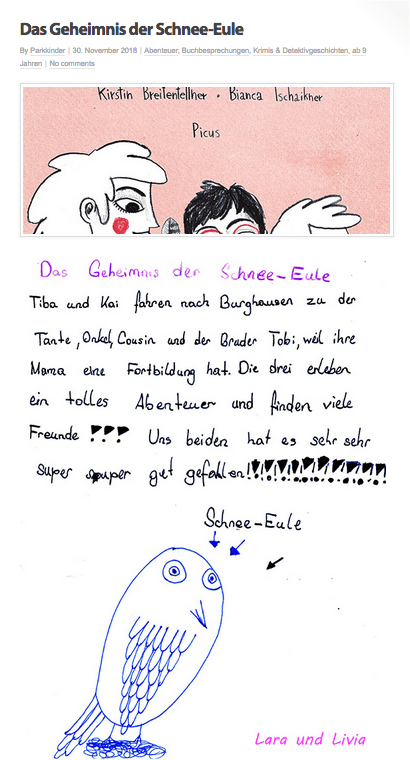 Das Geheimnis der Schnee-Eule
By Parkkinder | 30. November 2018 | Abenteuer, Buchbesprechungen, Krimis & Detektivgeschichten, ab 9
Jahren | No comments
Kirstin Breitenfellner • Bianca Tschaikner
Picus
Das Geheimnis der Schnee-Eule
Tiba und Kai fahren nach Burghausen zu der
Tante, Onkel, Cousin und der Bruder Tobi, weil ihre
Mama eine Fortbildung hat. Die drei erleben
ein tolles Abenteuer und finden viele
Freunde !!! Uns beiden hat es sehr sehr
super super gut gefallen!!!!!!!!!!!!!!!
Schnee-Eule
Lara und Livia